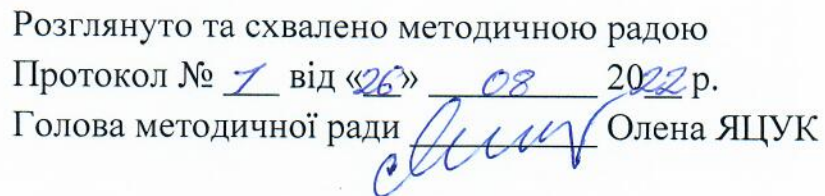 Розглянуто та схвалено методичною радою
Протокол № 1 від «26» 08 2022 р.
Голова методичної ради Олена ЯЦУК